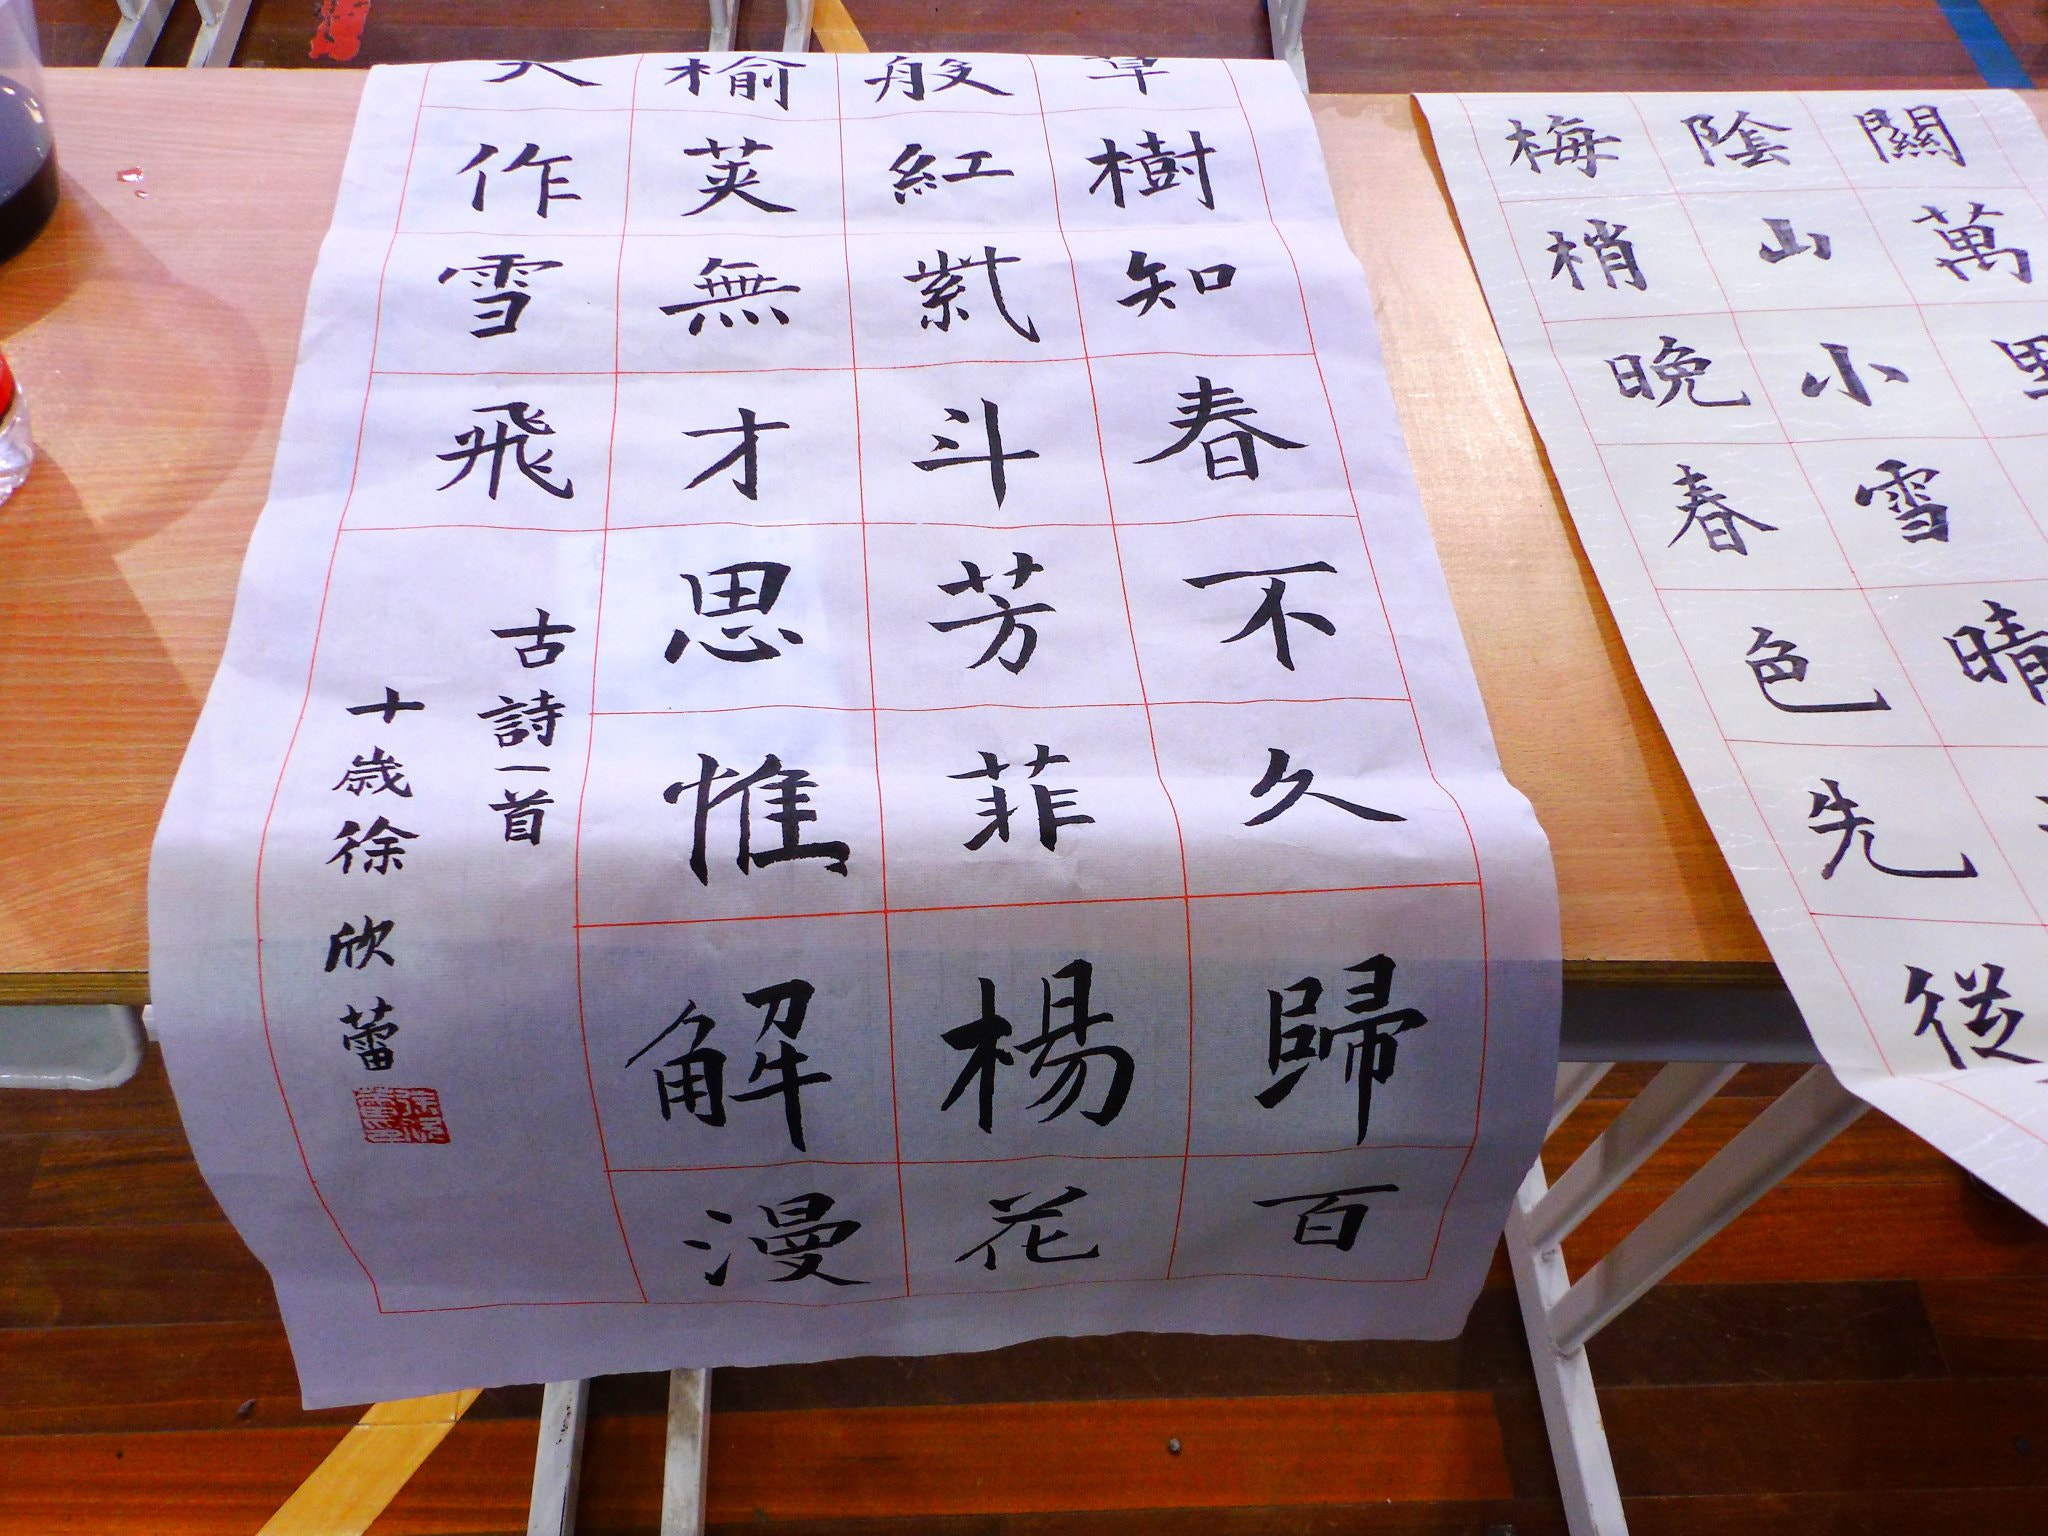 關萬里
陰山小雪晴
梅梢晚春色先從
草樹知春不久歸百
般紅紫斗芳菲楊花
榆莢無才思惟解漫
天作雪飛
古詩一首
十歲徐欣蕾